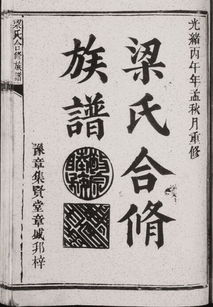 光緒丙午年孟秋月重修
梁氏合脩
族譜
豫章集賢堂章盛邦梓
梁氏合修族譜